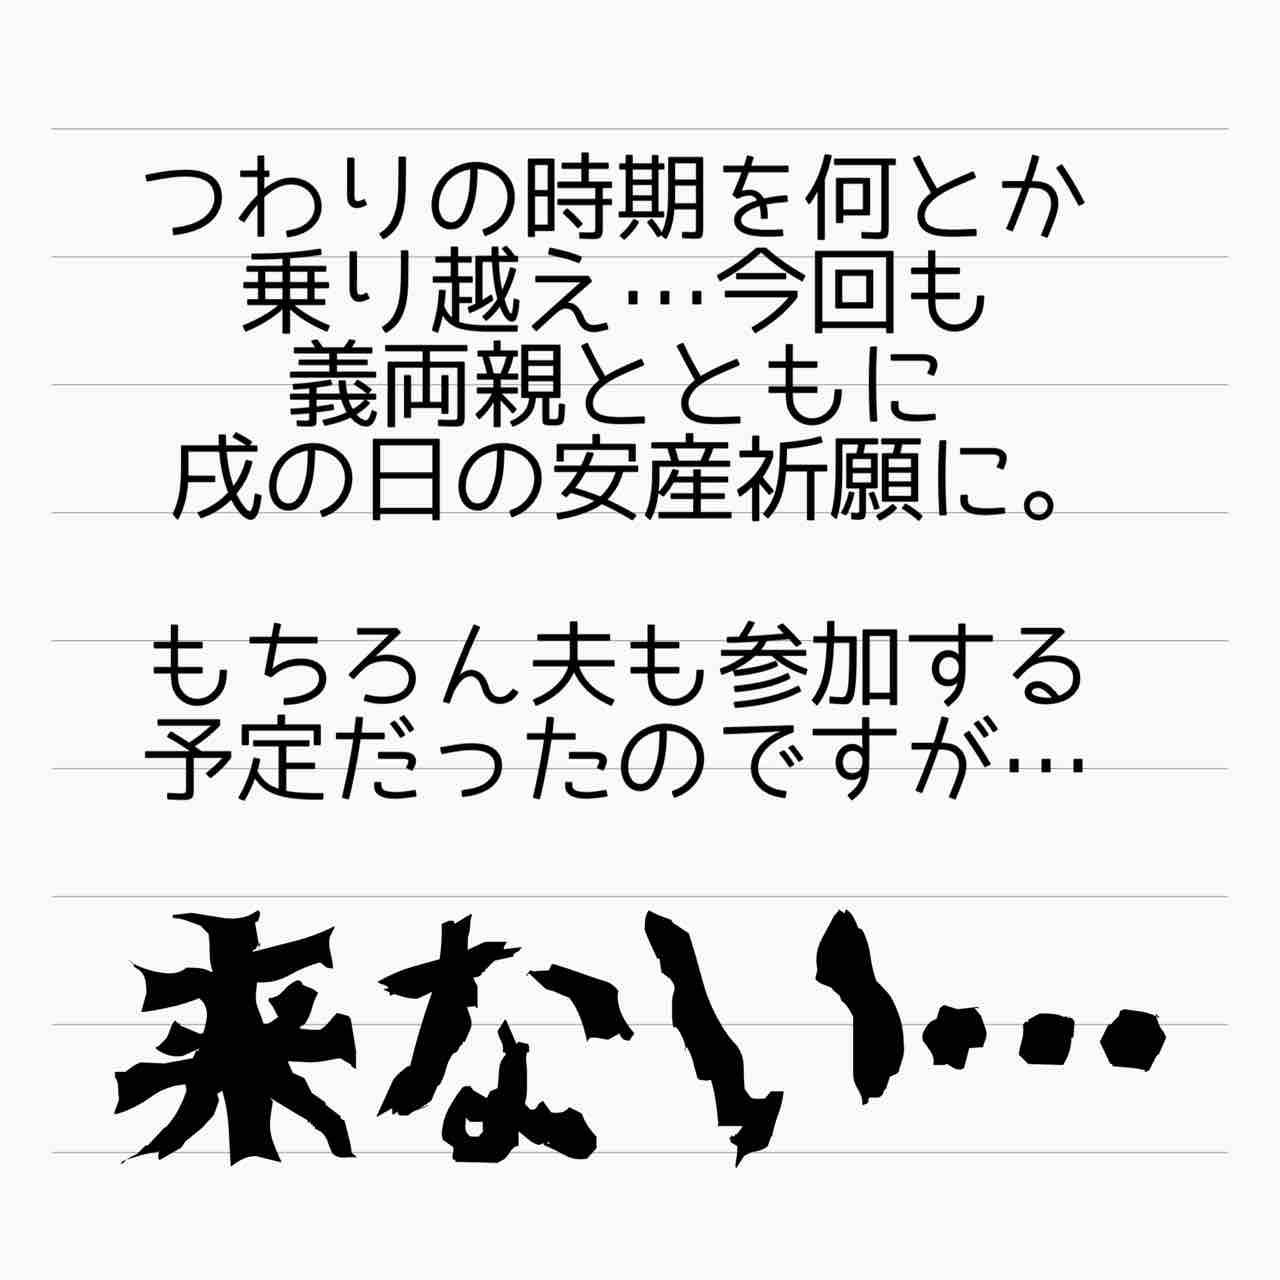 つわりの時期を何とか
乗り越え…今回も
義両親とともに
戌の日の安産祈願に。
もちろん夫も参加する
予定だったのですが…
来ない…